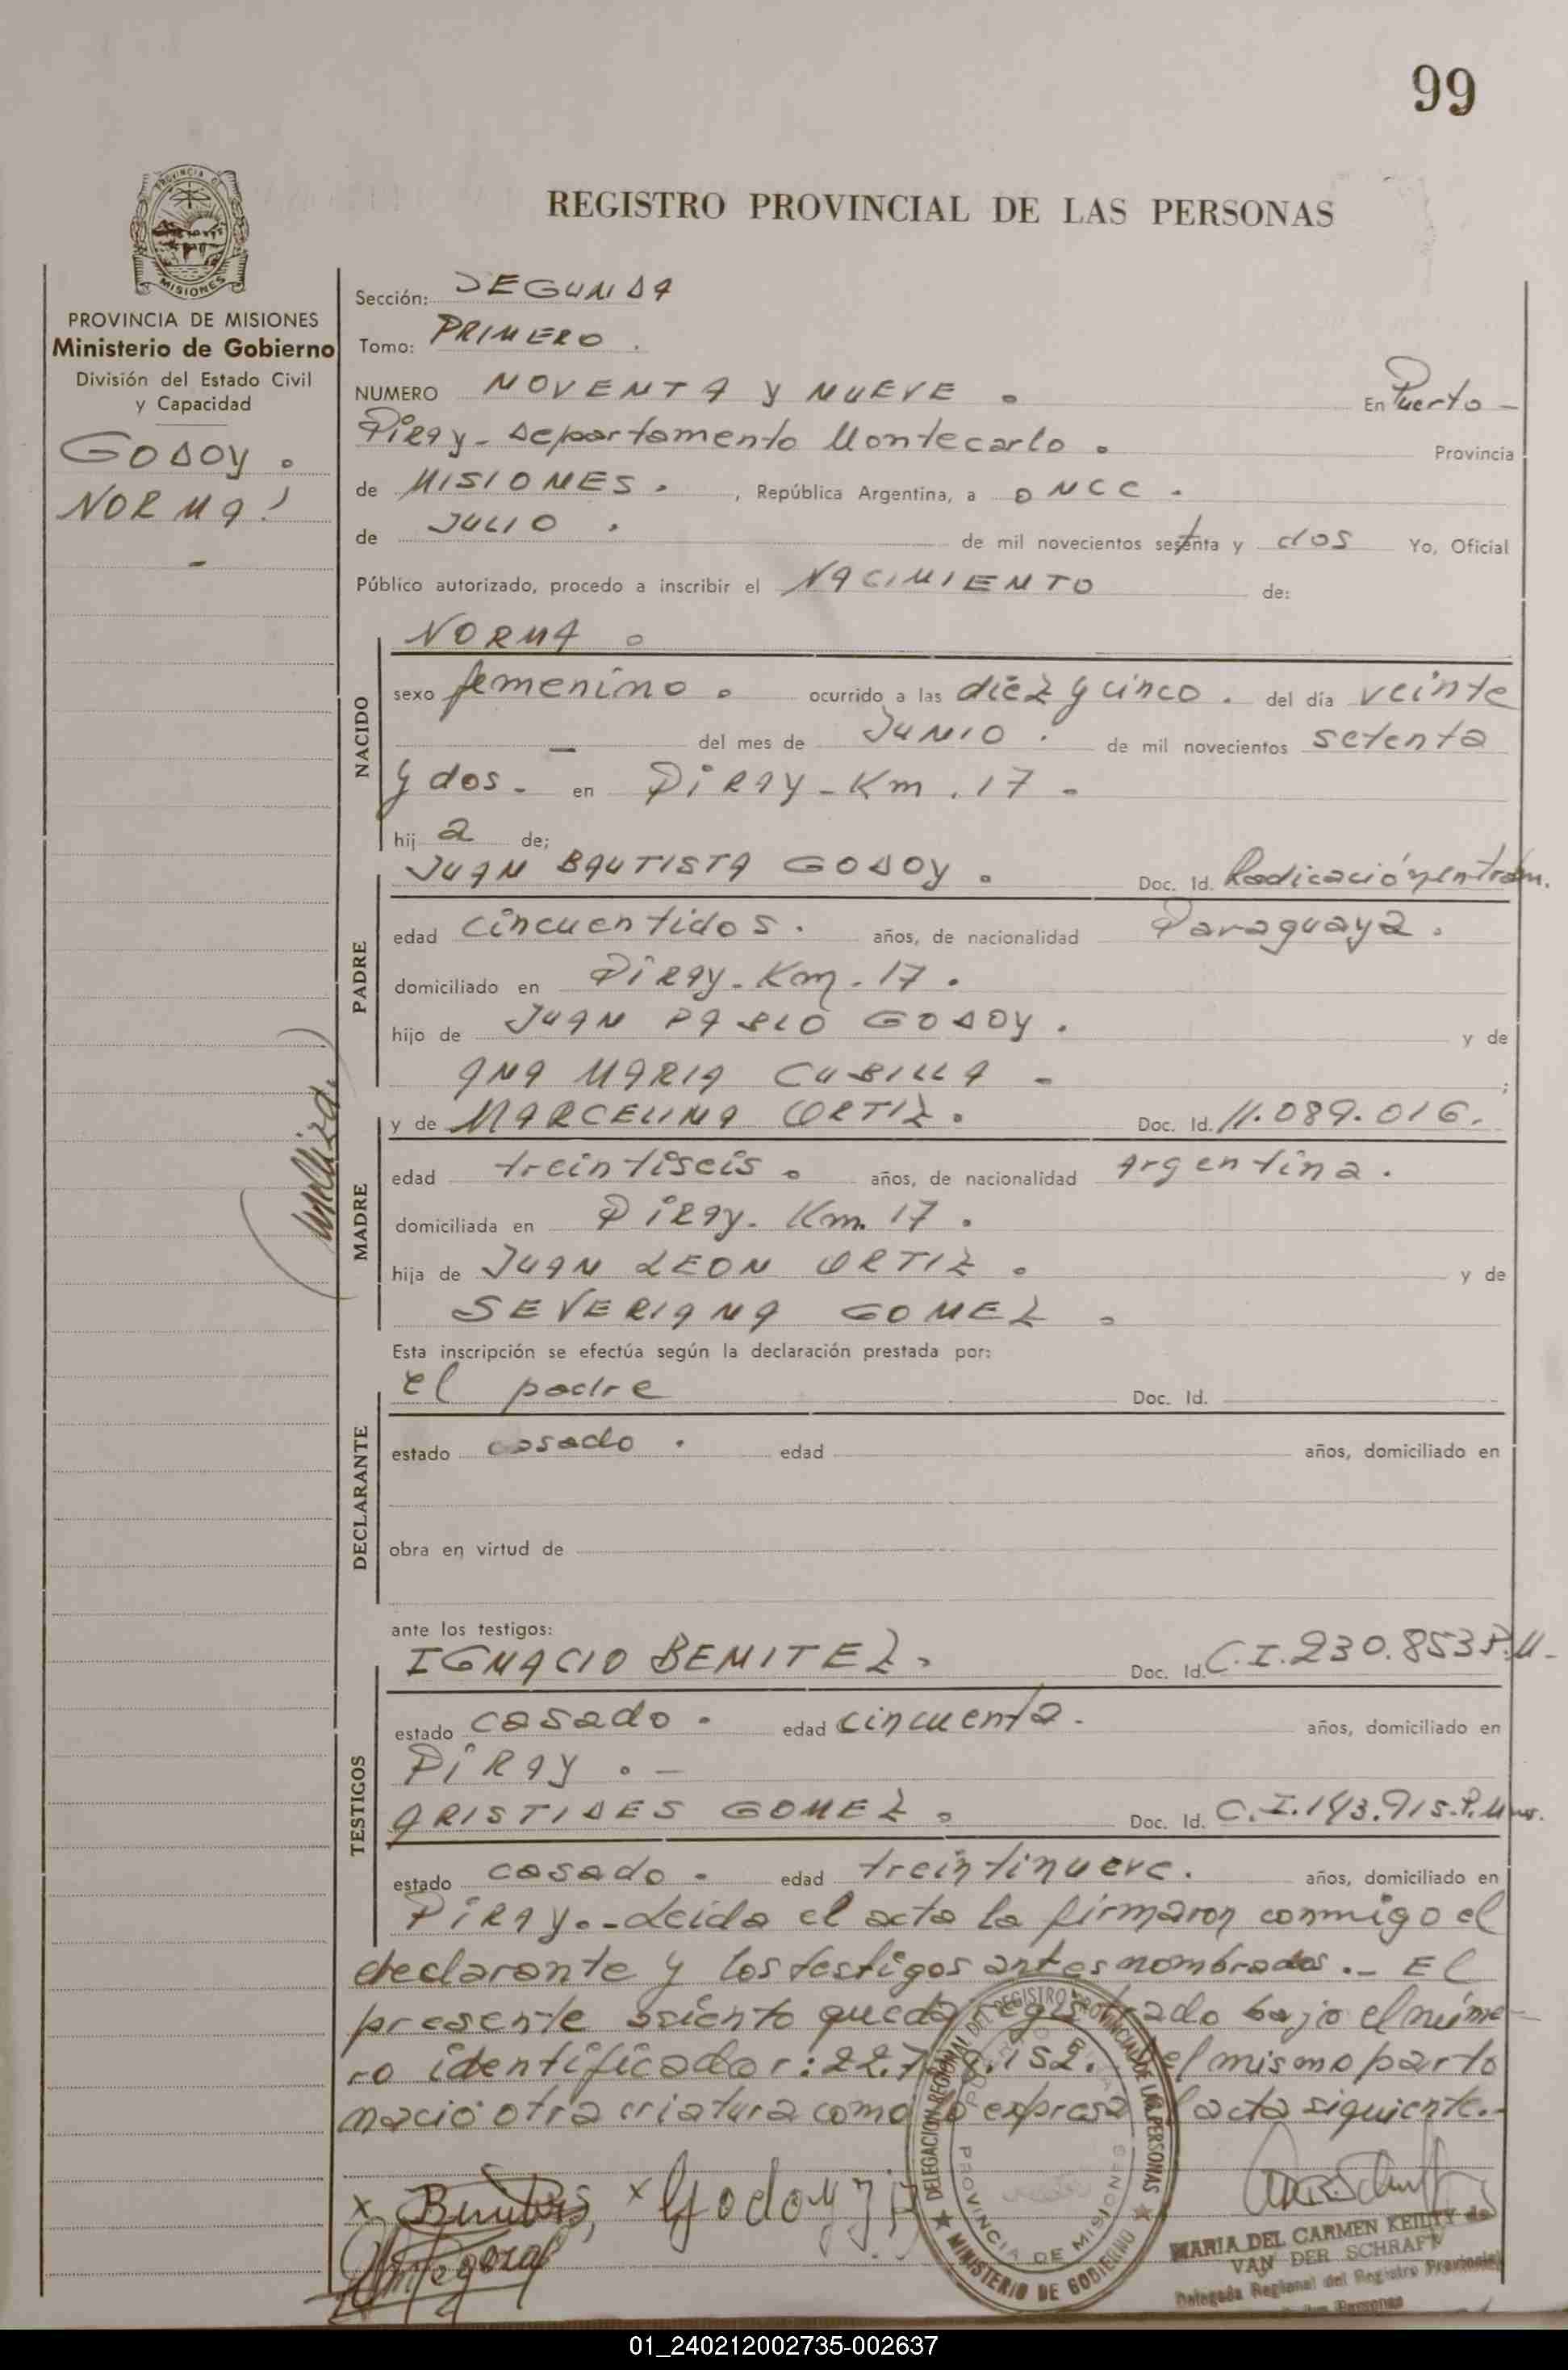 99
REGISTRO PROVINCIAL DE LAS PERSONAS
PROVINCIA DE MISIONES
Ministerio de Gobierno
División del Estado Civil
y Capacidad
GODOY
NORMA
Sección: SEGUNDA
Tomo: PRIMERO.
NUMERO NOVENTA Y NUEVE. En Puerto-
PIRAY- Departamento Montecarlo. Provincia
de MISIONES. , República Argentina, a ONCE.
de JULIO. de mil novecientos setenta y dos Yo, Oficial
Público autorizado, procedo a inscribir el NACIMIENTO de:
NORMA.
NACIDO
sexo femenino. ocurrido a las diez y cinco. del día veinte
- del mes de JUNIO. de mil novecientos setenta
y dos.- en PIRAY-Km.17-
hij a de;
PADRE
JUAN BAUTISTA GODOY. Doc. Id. Radicación en trám.
edad cincuentidos. años, de nacionalidad Paraguaya.
domiciliado en PIRAY-Km.17.
hijo de JUAN PABLO GODOY. y de
ANA MARIA CUBILLA- ;
MADRE
y de MARCELINA ORTIZ. Doc. Id. 11.089.016.
edad treintiseis. años, de nacionalidad Argentina.
domiciliada en PIRAY-Km.17.
hija de JUAN LEON ORTIZ. y de
SEVERIANA GOMEZ.
(Melliza)
Esta inscripción se efectúa según la declaración prestada por:
DECLARANTE
el padre Doc. Id.
estado casado. edad años, domiciliado en
obra en virtud de
ante los testigos:
TESTIGOS
IGNACIO BENITEZ. Doc. Id. C.I.230.853 P.M-
estado casado. edad cincuenta. años, domiciliado en
PIRAY.-
ARISTIDES GOMEZ. Doc. Id. C.I.143.915.P.Mnes.
estado casado. edad treintinueve. años, domiciliado en
PIRAY.-Leída el acta la firmaron conmigo el
declarante y los testigos antes nombrados.- El
presente asiento queda registrado bajo el núme-
ro identificador: 22.7 .152. el mismo parto
nació otra criatura como lo expresa el acta siguiente.-
x Benites, x Godoy J
DELEGACION REGIONAL DEL REGISTRO PROVINCIAL DE LAS PERSONAS
MINISTERIO DE GOBIERNO
PROVINCIA DE MISIONES
MARIA DEL CARMEN KEILTY de
VAN DER SCHRAFT
Delegada Regional del Registro Provincial
de las Personas
01_240212002735-002637